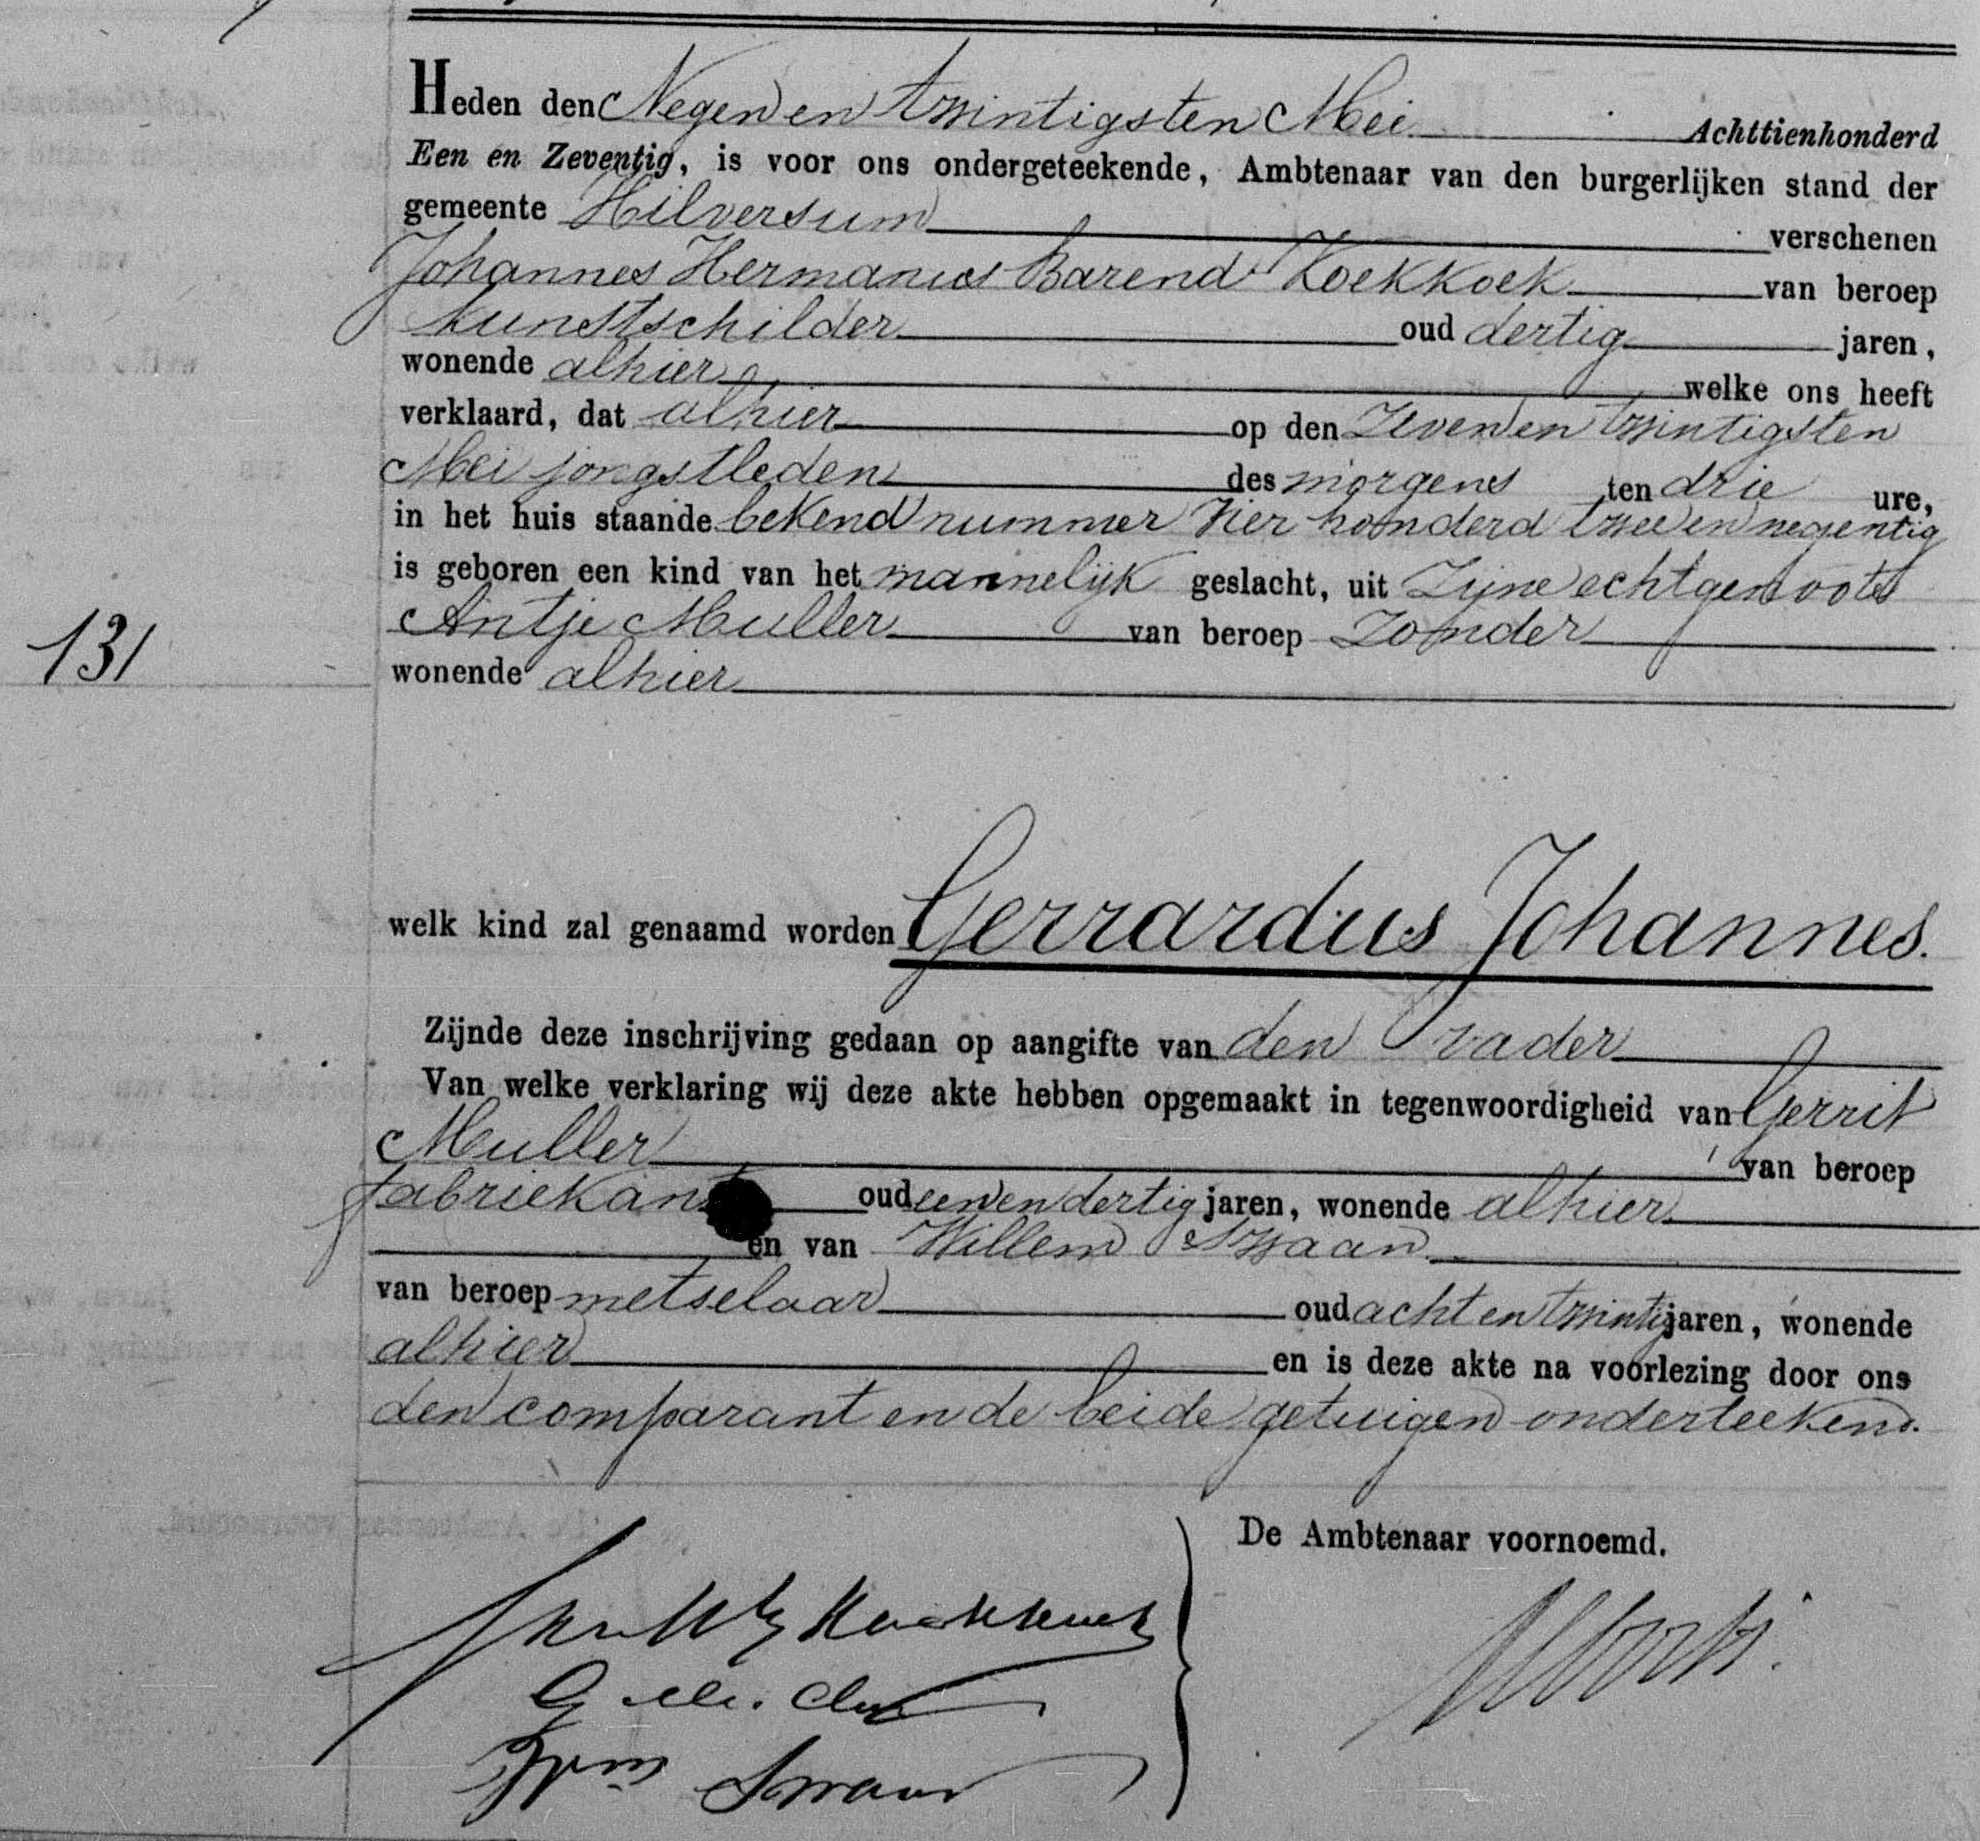 Heden den Negen en twintigsten Mei Achttienhonderd
Een en Zeventig, is voor ons ondergeteekende, Ambtenaar van den burgerlijken stand der
gemeente Hilversum verschenen
Johannes Hermanus Barend Koekkoek van beroep
kunstschilder oud dertig jaren,
wonende alhier welke ons heeft
verklaard, dat alhier op den Zeven en twintigsten
Mei jongstleden des morgens ten drie ure,
in het huis staande bekend nummer Vier honderd twee en negentig
is geboren een kind van het mannelijk geslacht, uit Zijne echtgenoote
Antje Muller van beroep Zonder
131
wonende alhier
welk kind zal genaamd worden Gerrardus Johannes.
Zijnde deze inschrijving gedaan op aangifte van den vader
Van welke verklaring wij deze akte hebben opgemaakt in tegenwoordigheid van Gerrit
Muller van beroep
fabriekant oud een en dertig jaren, wonende alhier
en van Willem Swaan
van beroep metselaar oud acht en twintig jaren, wonende
alhier en is deze akte na voorlezing door ons
den comparant en de beide getuigen onderteekend.
De Ambtenaar voornoemd.
Koekkoek
G Muller
Wm Swaan